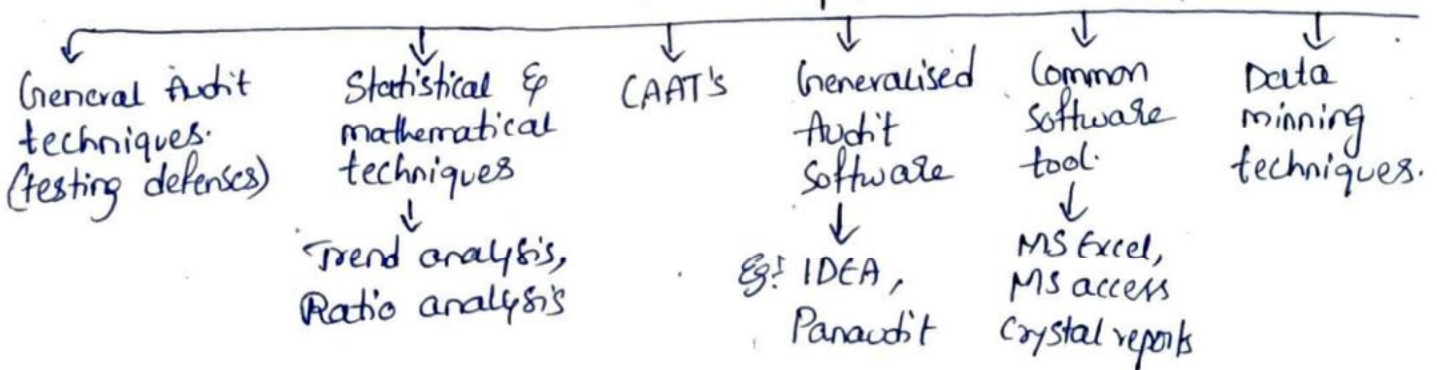 General Audit
techniques.
(testing defenses)
Statistical &
mathematical
techniques
Trend analysis,
Ratio analysis
CAAT's
Generalised
Audit
Software
Eg: IDEA,
Panaudit
Common
software
tool.
MS Excel,
MS access
Crystal reports
Data
minning
techniques.